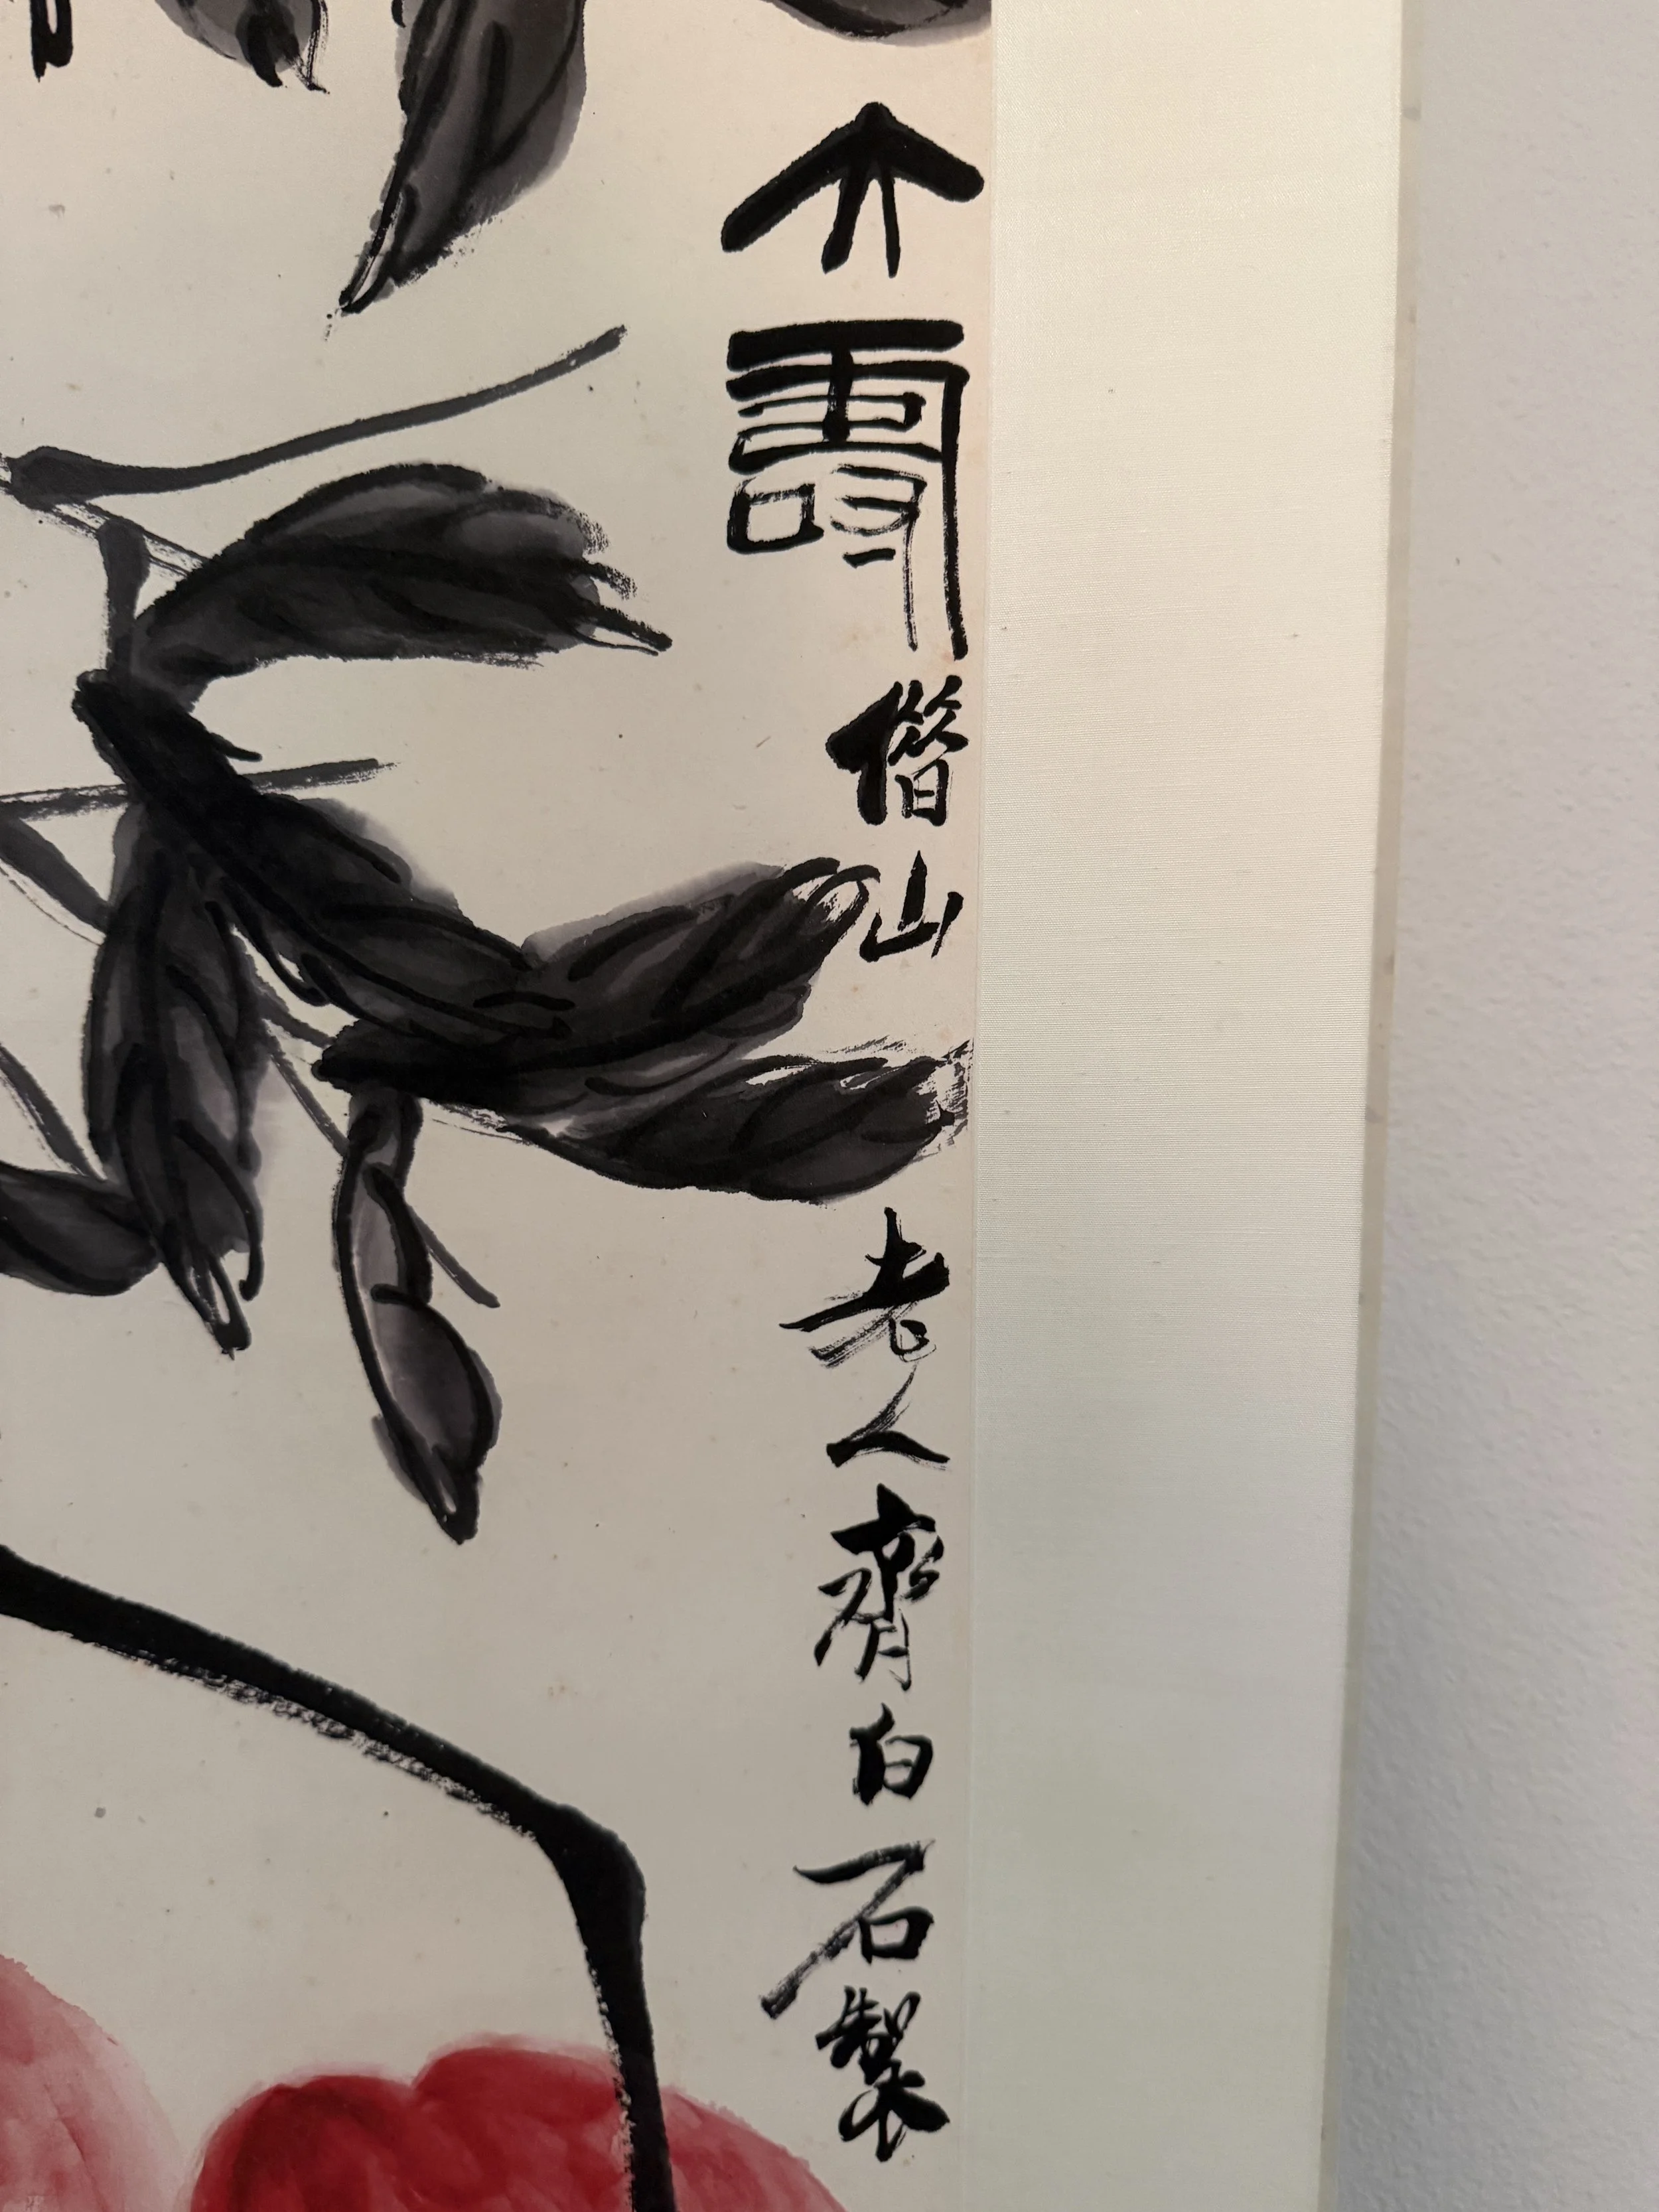 大壽借山老人齊白石製